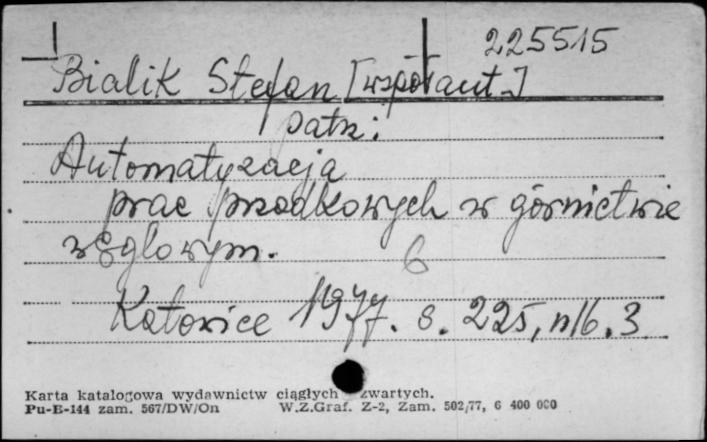 225515
Bialik Stefan [współaut.]
patrz:
Automatyzacja
prac przodkowych w górnictwie
węglowym.
6
Katowice 1977. s. 225, nlb. 3
Karta katalogowa wydawnictw ciągłych zwartych.
Pu-E-144 zam. 567/DW/On W.Z.Graf. Z-2, Zam. 502/77, 6 400 000